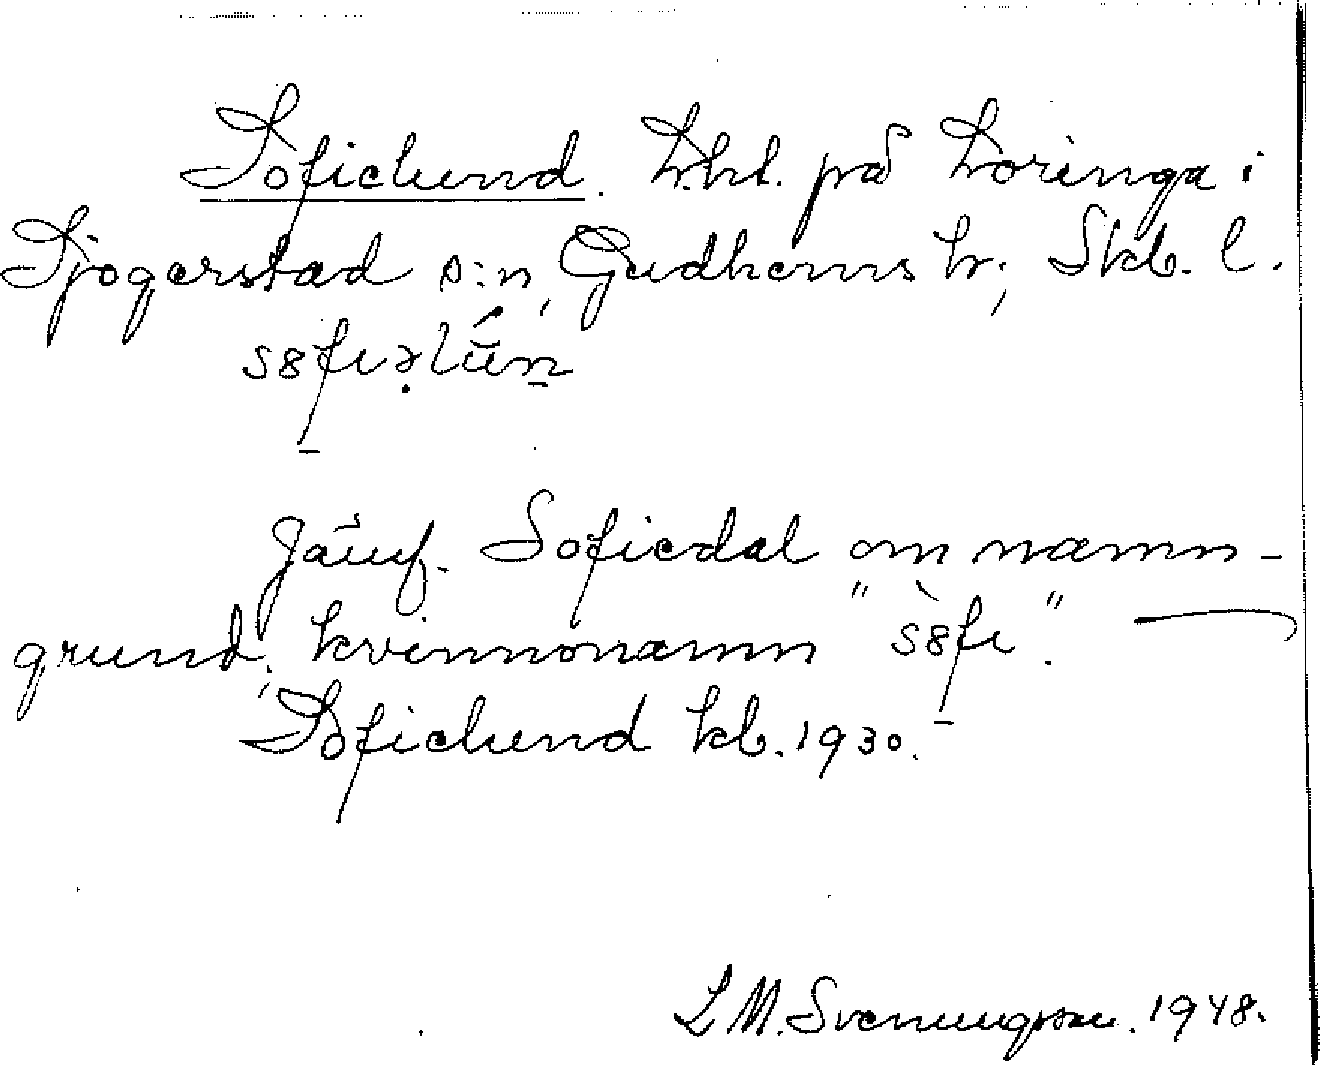 Sofielund. Lht. på Loringa i
Sjogerstad s:n, Gudhems hr; Skb. l.
Jämf. Sofiedal om namn-
grund, kvinnonamn "
Sofielund kb. 1930.
L M. Svenungsson. 1948.